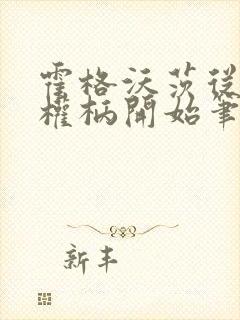 霍格沃茨從
權柄開始筆
新丰